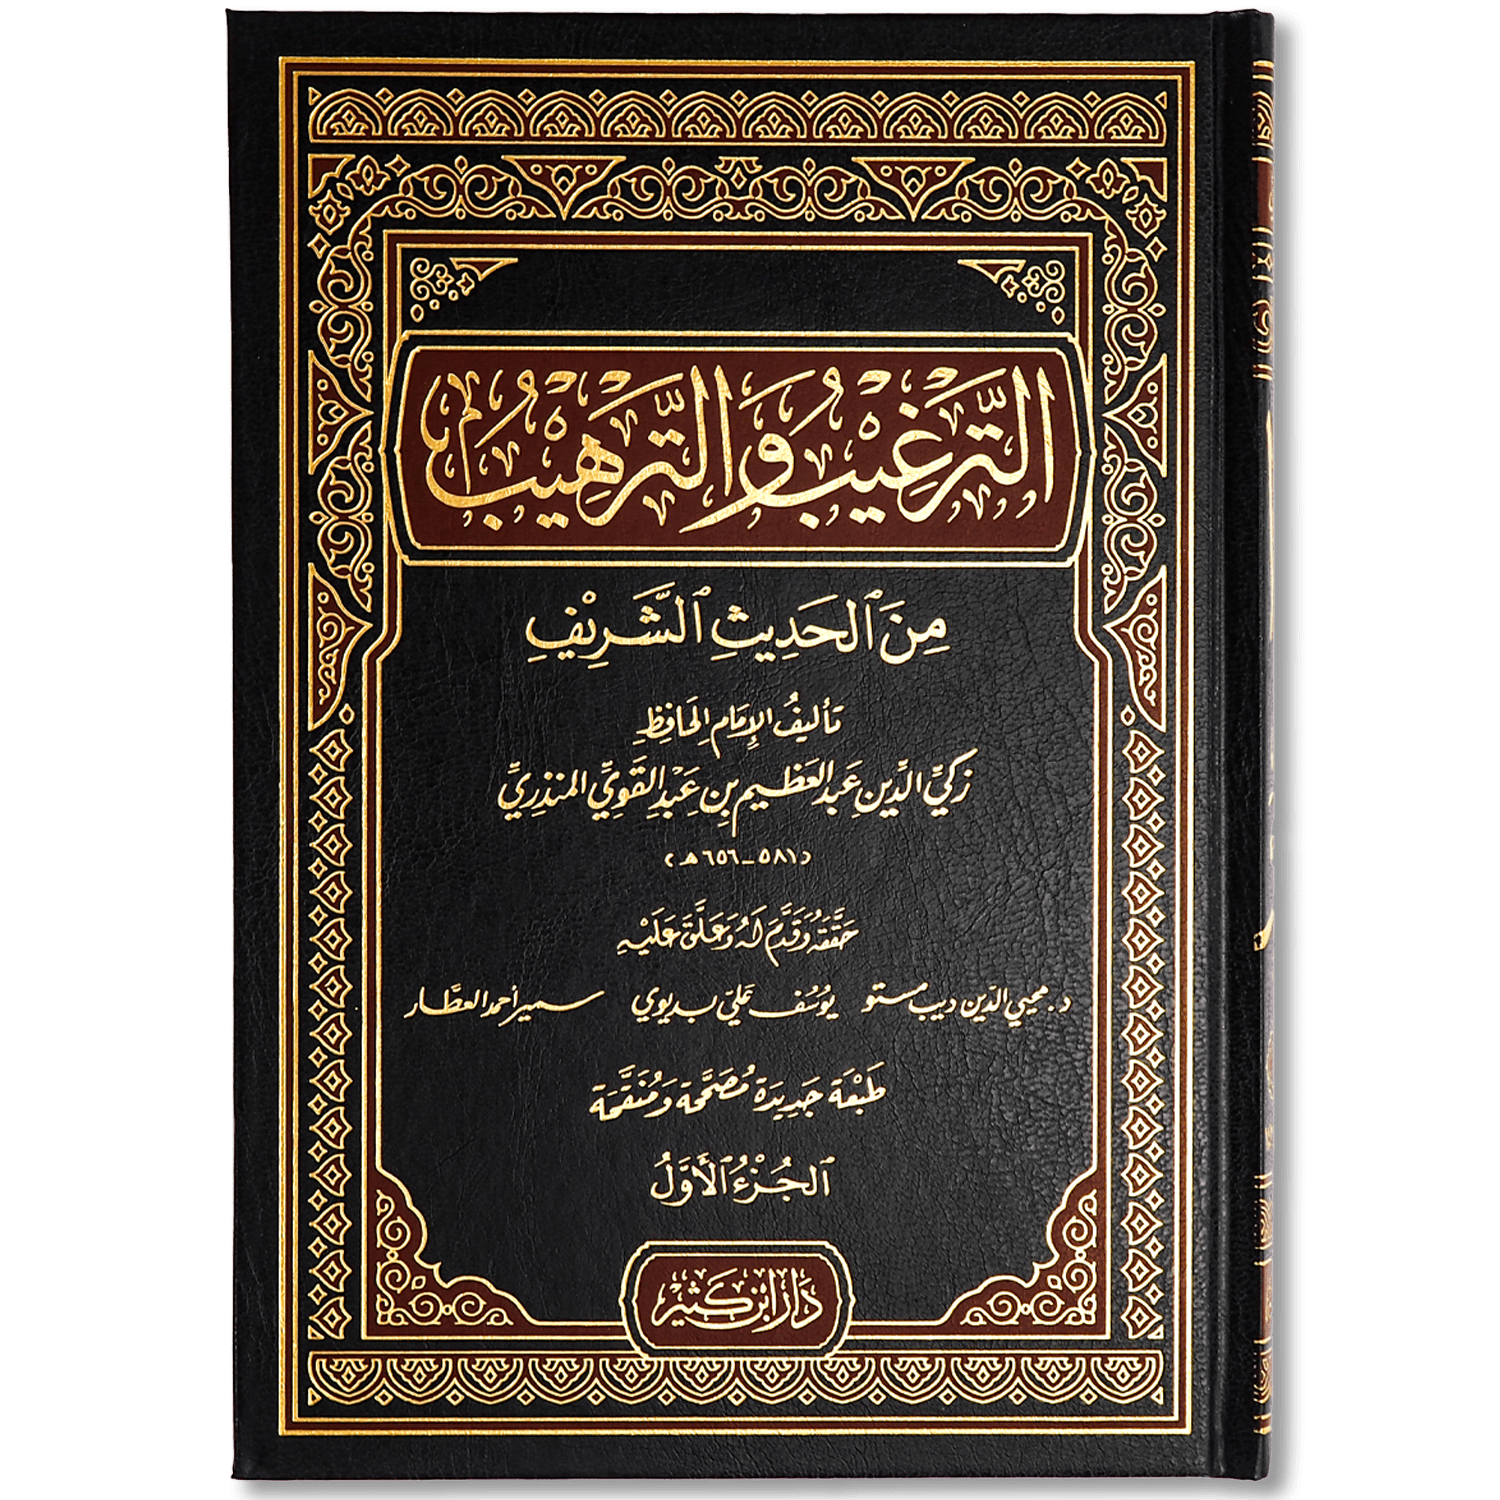 التَّرْغِيْبُ وَالتَّرْهِيْبُ
مِنَ الحَدِيْثِ الشَّرِيْفِ
تأليفُ الإمَامِ الحَافِظِ
زكيِّ الدِّين عَبد العَظيم بنِ عَبْدِ القَوِيِّ المنذِرِيِّ
(٥٨١ - ٦٥٦ هـ)
حَقَّقَهُ وَقَدَّمَ لَهُ وَعَلَّقَ عَلَيْهِ
د. محيي الدّين ديب مستو يوُسُف عَليّ بديوي سمير أحمد العطَّار
طَبْعَة جَدِيدَة مُصَحَّحَة وَمُنَقَّحَة
الجُزْءُ الأَوَّلُ
دَارُ ابْن كَثيْر